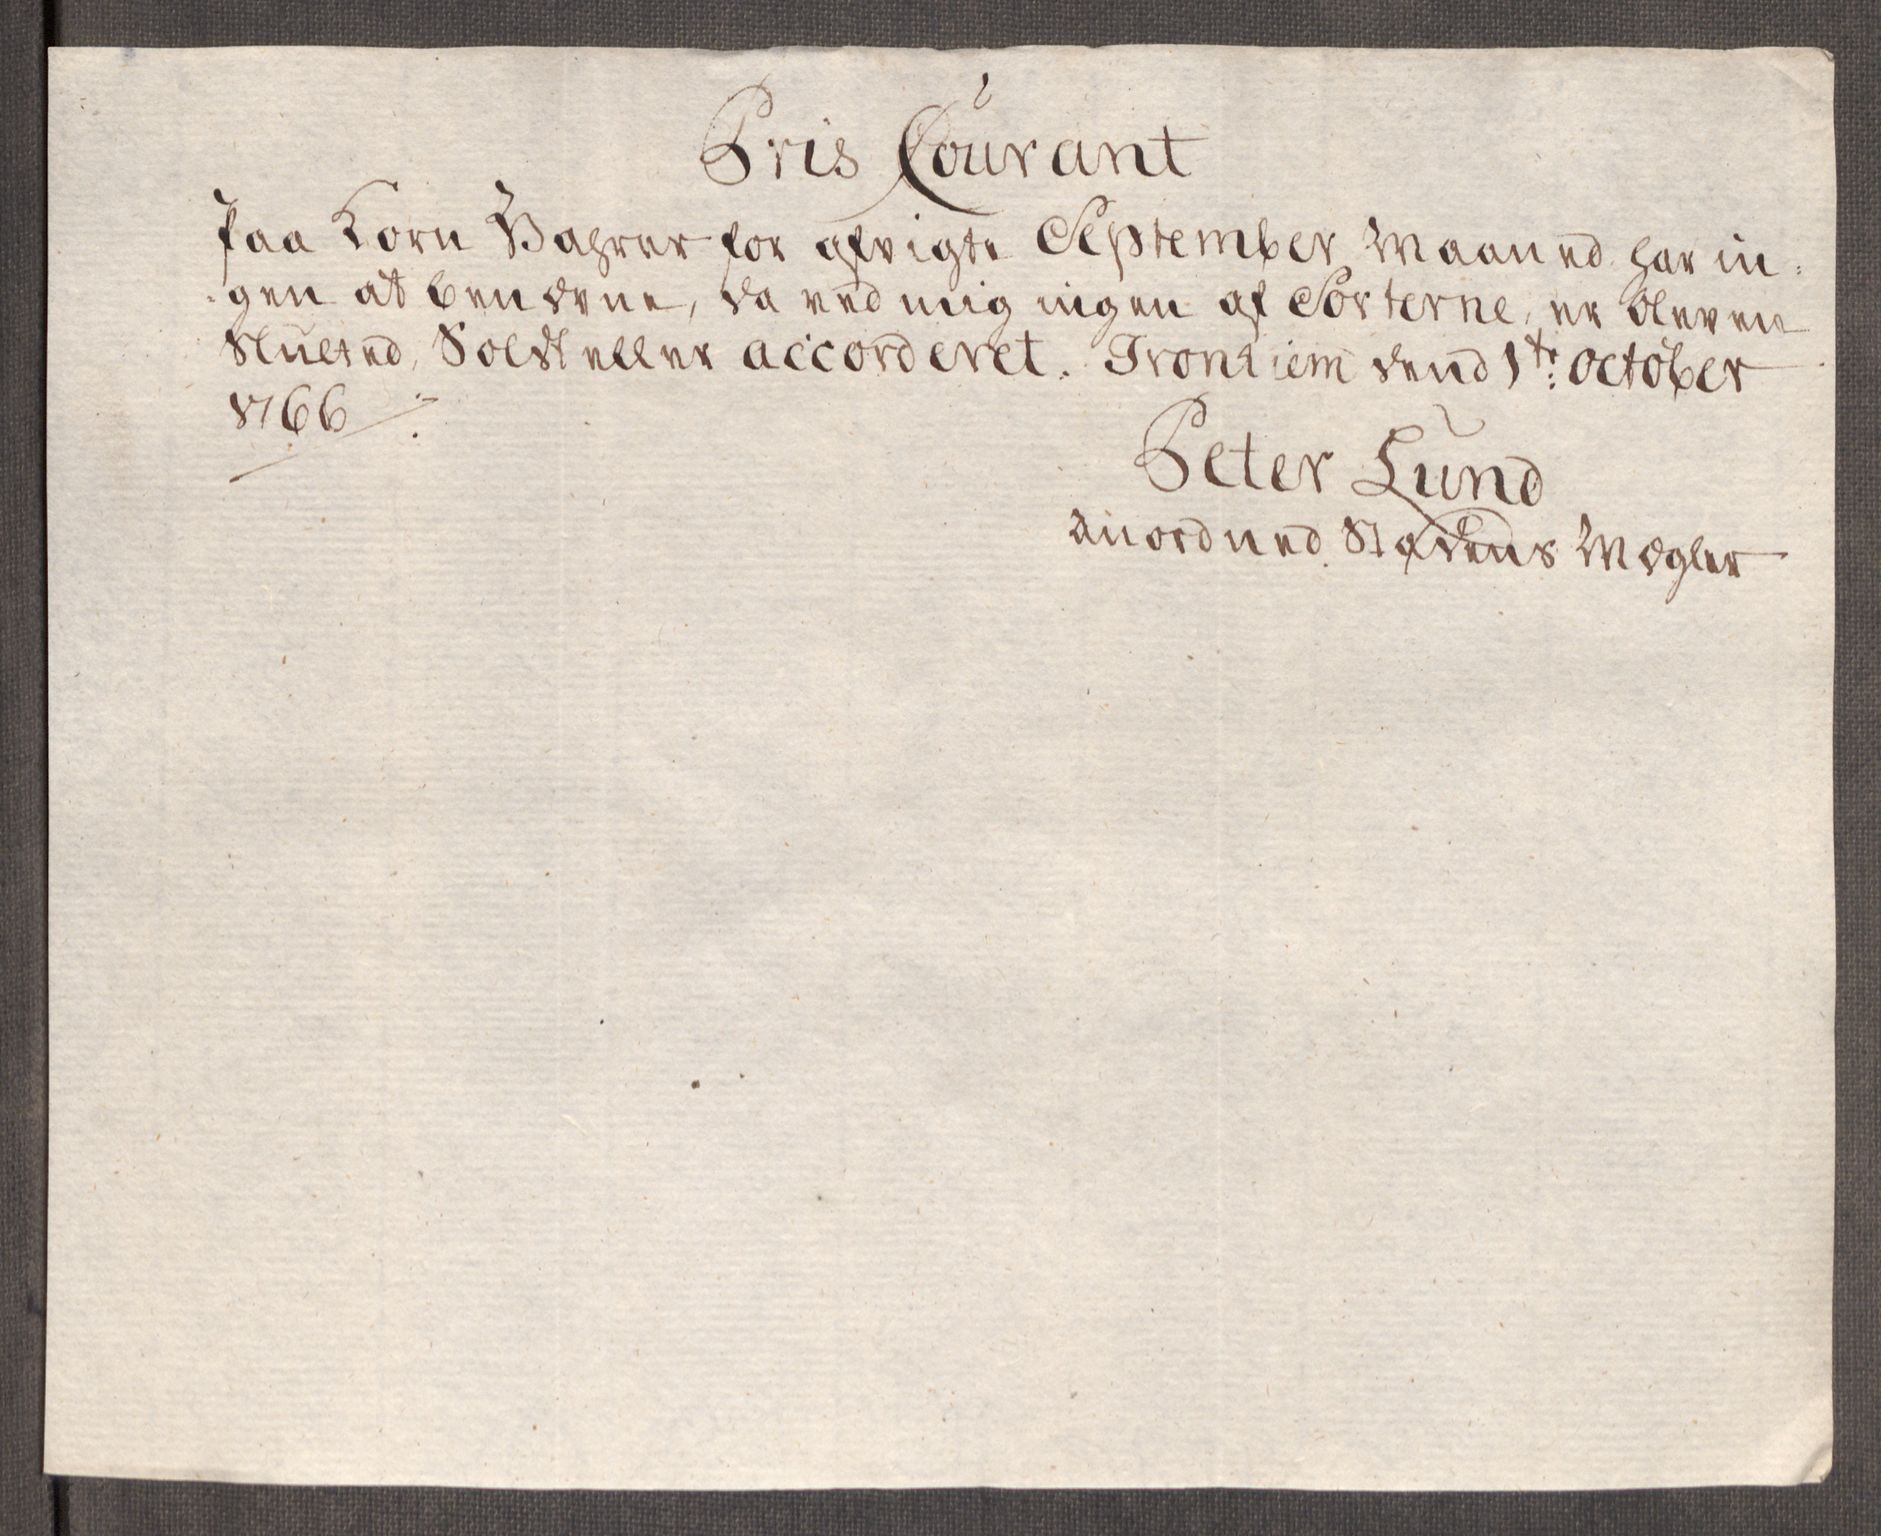 Pris Courant
paa Korn Vahrer for afvigte September Maaned har in:
:gen at bendene, da ved mig ingen af Sorterne, er bleven
Slutted, Soldt eller accorderet. Trondiem dend 1te: October
1766
Peter Lund
Anordned Stadens Mægler